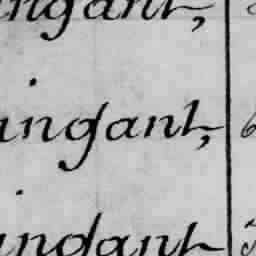 ingant,
ingant,
ingant